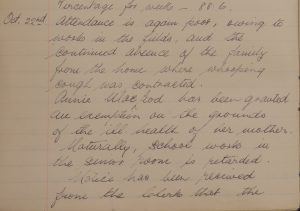 Percentage for week - 88.6.
Oct. 22nd. Attendance is again poor, owing to
work in the fields, and the
continued absence of the family
from the home where whooping
cough was contracted.
Annie MacLeod has been granted
an exemption on the grounds
of the ill health of her mother.
Naturally, school work in
the senior room is retarded.
has been received
from the Clerk that the